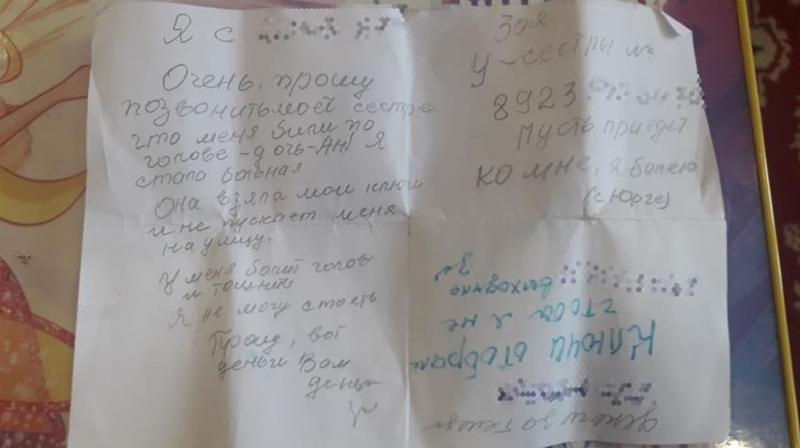 Я с
Очень, прошу
позвонитьмоей сестре
что меня били по
голове - дочь-Аня Я
стала больная
Она взяла мои ключи
и не пускает меня
на улицу.
У меня болит голов
и тошнит
Я не могу стоять
Прошу, вот
деньги Вам
Зоя
У-сестры №
8923
Пусть приедет
ко мне, я болею
(с Юрге)
Ключи отобрали
чтобы я не
выходила
за
деньги за